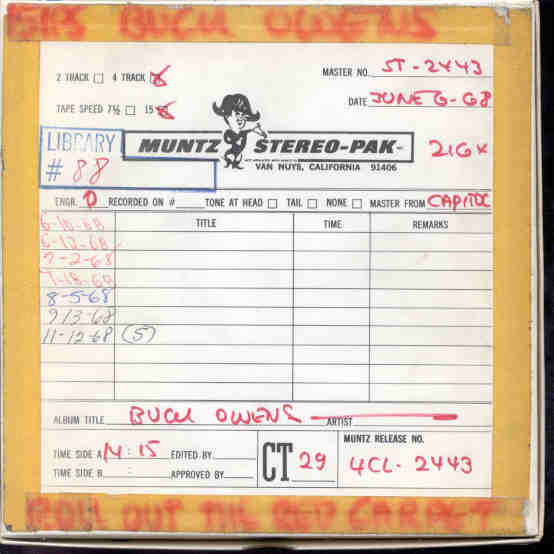 BUCK OWENS
2 TRACK 4 TRACK
MASTER NO. ST-2443
TAPE SPEED 7½ 15
DATE JUNE 6-68
LIBRARY
# 88
MUNTZ STEREO-PAK INC
VAN NUYS, CALIFORNIA 91406
216X
ENGR. D RECORDED ON # TONE AT HEAD TAIL NONE MASTER FROM CAPITOL
TITLE TIME REMARKS
6-10-68
6-12-68
7-2-68
7-18-68
8-5-68
9/3-68
11-12-68 (5)
ALBUM TITLE BUCK OWENS ARTIST
TIME SIDE A 14:15 EDITED BY
TIME SIDE B : APPROVED BY
CT 29
MUNTZ RELEASE NO.
4CL-2443
ROLL OUT THE RED CARPET